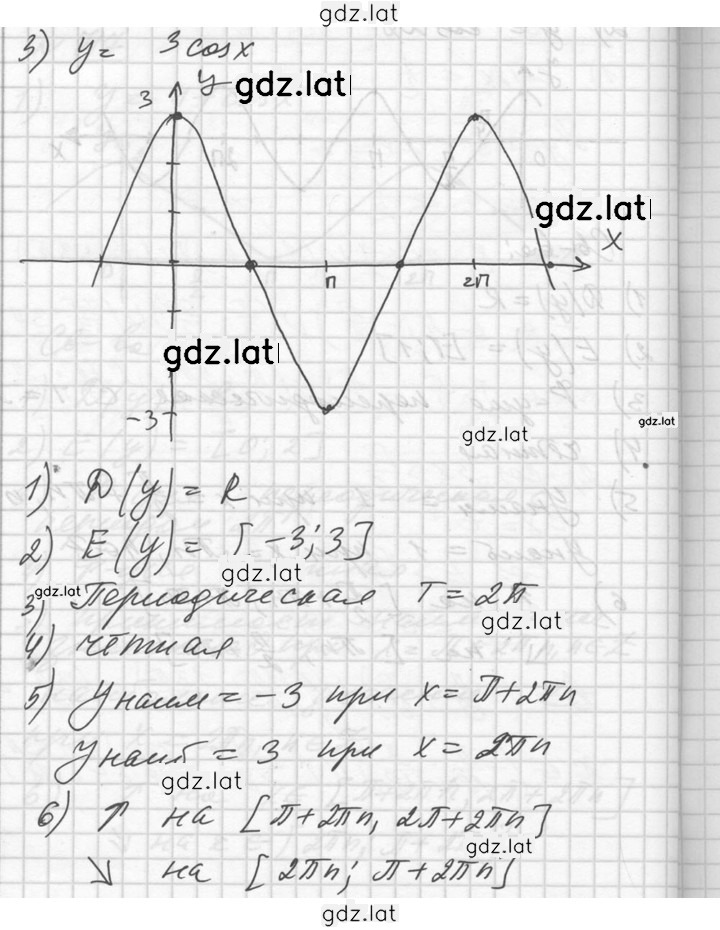 gdz.lat
3) y = 3cosx
y
gdz.lat
3
gdz.lat
x
π
2π
gdz.lat
-3
gdz.lat
gdz.lat
1) D(y) = R
2) E(y) = [-3; 3]
gdz.lat
3) Периодическая T = 2π
gdz.lat
gdz.lat
4) чётная
5) Yнаим = -3 при x = π+2πn
Yнаиб = 3 при x = 2πn
gdz.lat
6) ↑ на [π+2πn, 2π+2πn]
gdz.lat
↘ на [2πn; π+2πn]
gdz.lat